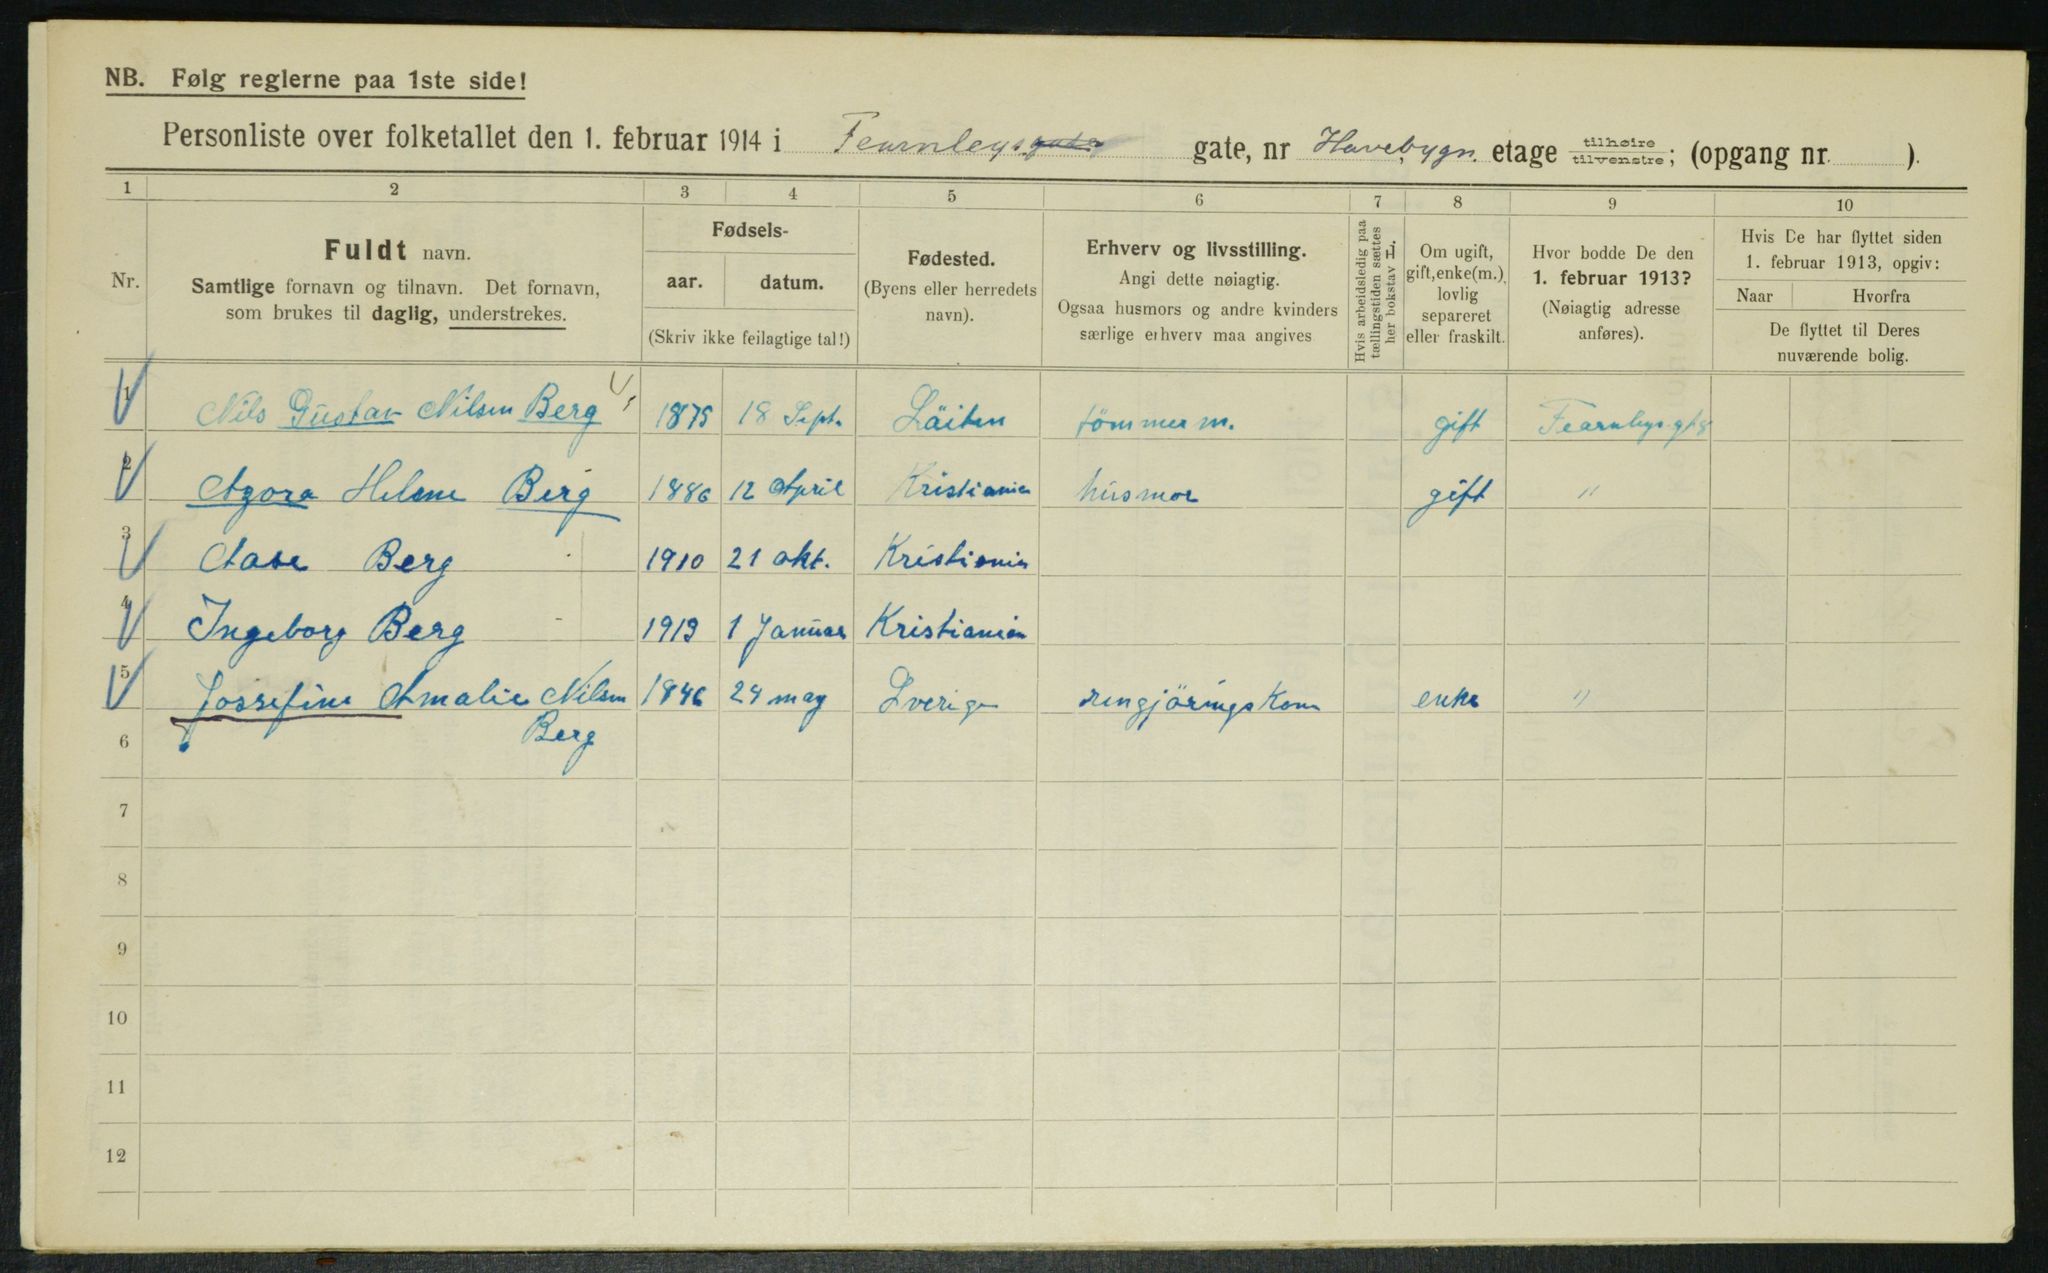 NB. Følg reglerne paa 1ste side!
Personliste over folketallet den 1. februar 1914 i Fearnleys gate, nr Havebygn. etage tilhøire tilvenstre; (opgang nr. ).
1 2 3 4 5 6 7 8 9 10
Nr.
Fuldt navn.
Samtlige fornavn og tilnavn. Det fornavn,
som brukes til daglig, understrekes.
Fødsels-
aar. datum.
(Skriv ikke feilagtige tal!)
Fødested.
(Byens eller herredets
navn).
Erhverv og livsstilling.
Angi dette nøiagtig.
Ogsaa husmors og andre kvinders
særlige erhverv maa angives
Hvis arbeidsledig paa
tællingstiden sættes
her bokstav L.
Om ugift,
gift, enke(m.),
lovlig
separeret
eller fraskilt.
Hvor bodde De den
1. februar 1913?
(Nøiagtig adresse
anføres).
Hvis De har flyttet siden
1. februar 1913, opgiv:
Naar Hvorfra
De flyttet til Deres
nuværende bolig.
1 Nils Gustav Nilsen Berg 1875 18 Sept. Löiten tömmerm. gift
2 Agora Helene Berg 1886 12 April Kristiania husmor gift "
3 Aase Berg 1910 21 okt. Kristiania
4 Ingeborg Berg 1913 1 Januar Kristiania
5 Jossefine Amalie Nilsen 1846 24 may Sverige rengjöringskone enke "
Berg
6
7
8
9
10
11
12